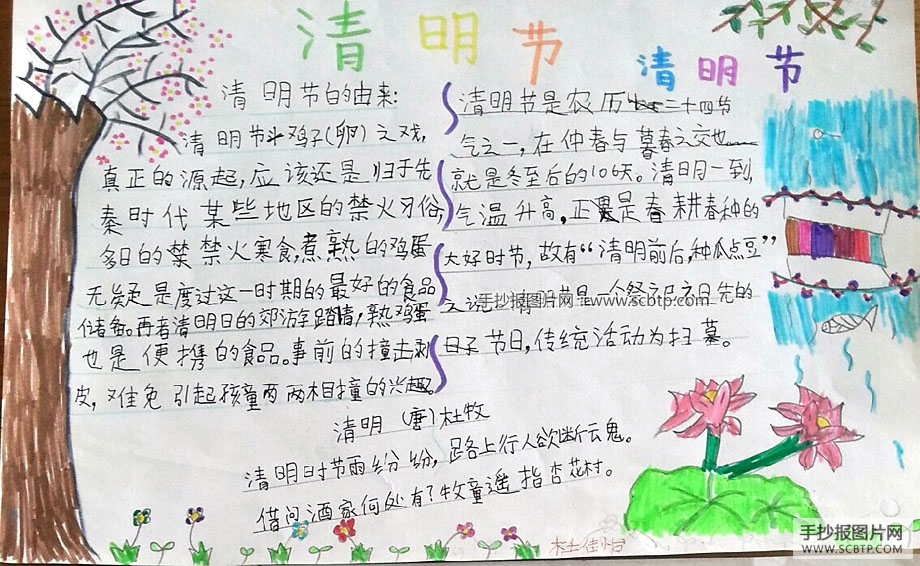 清明节
清明节
清明节的由来:
清明节斗鸡子(卵)之戏,
真正的源起,应该还是归于先
秦时代某些地区的禁火习俗,
多日的禁禁火寒食,煮熟的鸡蛋
无疑是度过这一时期的最好的食品
储备。再者清明日的郊游踏晴,熟鸡蛋
也是便携的食品。事前的撞击剥
皮,难免引起孩童两两相撞的兴趣。
清明节是农历二十四节
气之一,在仲春与暮春之交也
就是冬至后的106天。清明一到,
气温升高,正是春耕春种的
大好时节,故有“清明前后,种瓜点豆”
之说。清明节是一个祭
先的
节日,传统活动为扫墓。
手抄报图片网:www.scbtp.com
清明 (唐)杜牧
清明时节雨纷纷,路上行人欲断云鬼。
借问酒家何处有?牧童遥指杏花村。
杜佳怡
手抄报图片网
WWW.SCBTP.COM